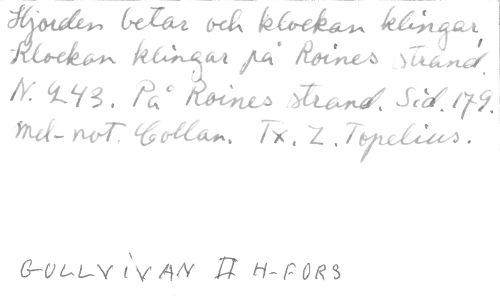 Hjorden betar och klockan klingar,
Klockan klingar på Roines strand.
N. 243. På Roines strand. Sid. 179.
Mel-not. Collan. Tx. Z. Topelius.
GULLVIVAN II H-FORS